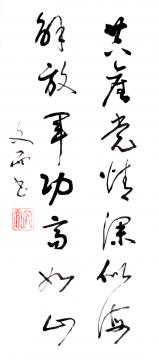 共产党情深似海
解放军功高如山